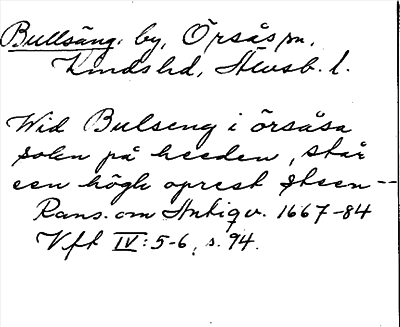 Bullsäng. by, Örsås sn,
Kinds hd, Älvsb. l.
Wid Bulseng i örsåsa
sokn på heeden, står
een högh oprest Steen --
Rans. om Antiqv. 1667-84
Vft IV: 5-6, s. 94.